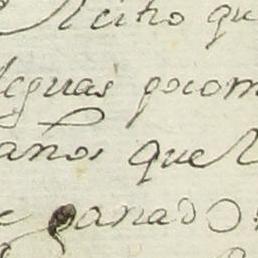 citio qu
leguas pocom
años que
e ganado